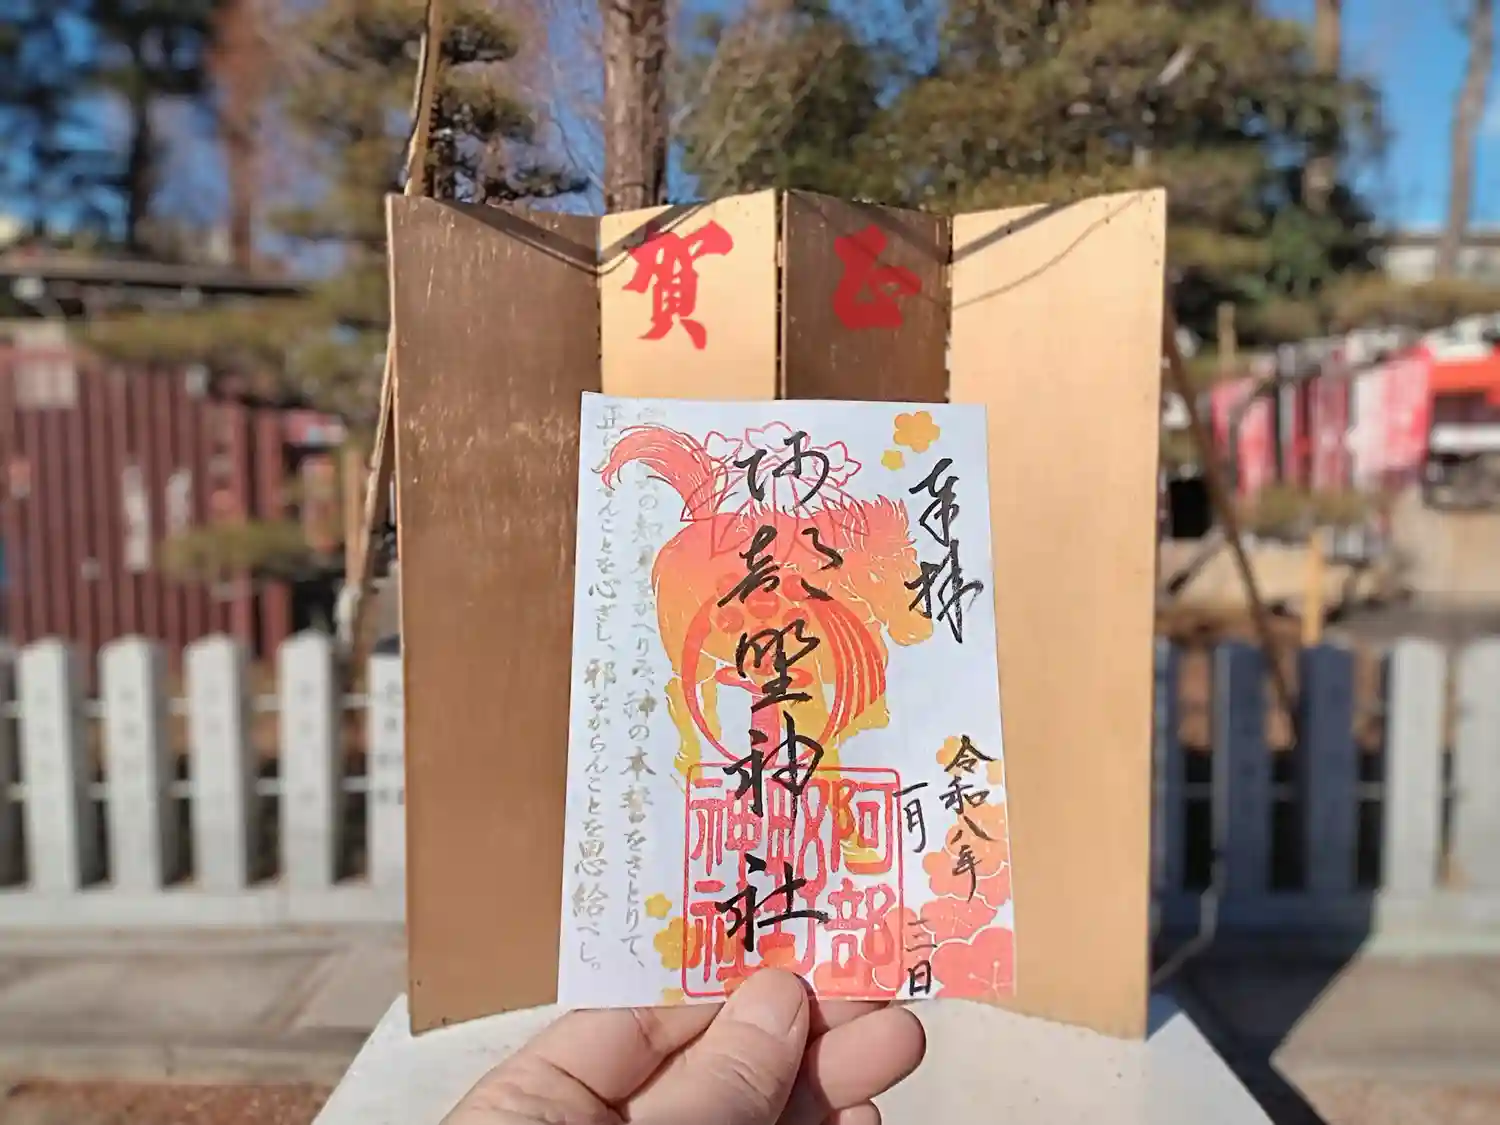 賀正
奉拝
令和八年
一月三日
阿部野神社
阿部
野
神社
の知見をかへりみ、神の本誓をさとりて、
正に
んことを心ざし、邪ならんことを思給べし。